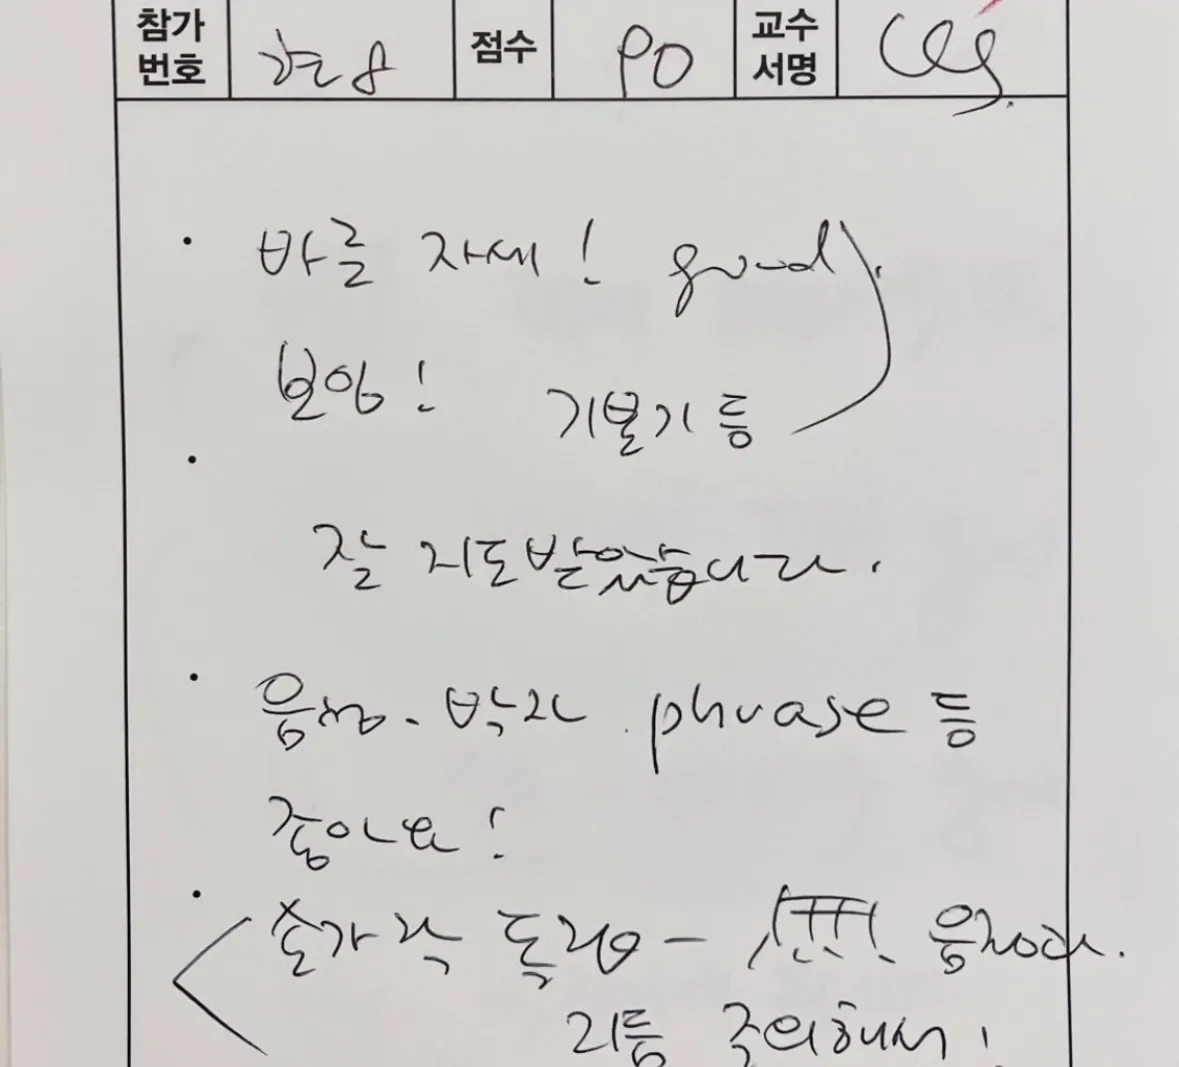 참가 번호 점수 90 교수 서명
바른 자세! good
모양! 기본기 등
잘 지도받았습니다.
음정. 박자. phrase 등
좋아요!
손가락 독립 -
리듬 주의해서!